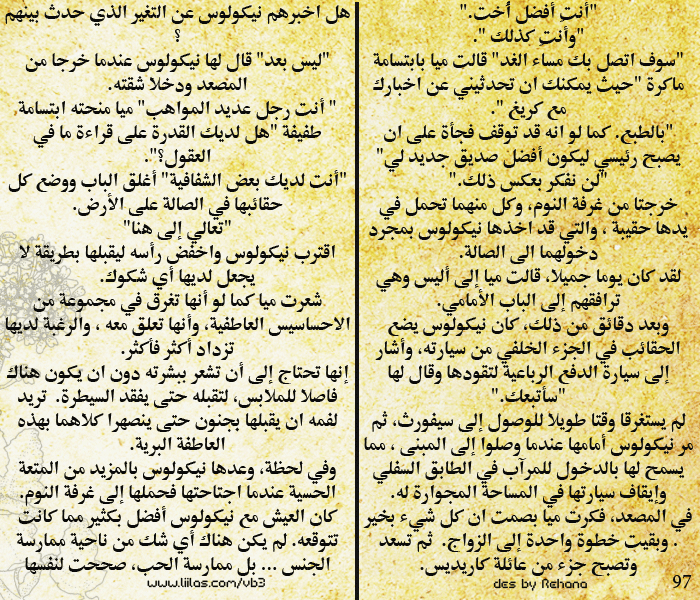 "أنتِ أفضل أخت."
"وأنتِ كذلك ".
"سوف اتصل بك مساء الغد" قالت ميا بابتسامة
ماكرة "حيث يمكنك ان تحدثيني عن اخبارك
مع كريغ ".
"بالطبع. كما لو انه قد توقف فجأة على ان
يصبح رئيسي ليكون أفضل صديق جديد لي"
"لن نفكر بعكس ذلك."
خرجتا من غرفة النوم، وكل منهما تحمل في
يدها حقيبة ، والتي قد اخذها نيكولوس بمجرد
دخولهما الى الصالة.
لقد كان يوما جميلا، قالت ميا إلى أليس وهي
ترافقهم إلى الباب الأمامي.
وبعد دقائق من ذلك، كان نيكولوس يضع
الحقائب في الجزء الخلفي من سيارته، وأشار
إلى سيارة الدفع الرباعية لتقودها وقال لها
"سأتبعك."
لم يستغرقا وقتا طويلا للوصول إلى سيفورث، ثم
مر نيكولوس أمامها عندما وصلوا إلى المبنى ، مما
يسمح لها بالدخول للمرآب في الطابق السفلي
وإيقاف سيارتها في المساحة المجوارة له.
في المصعد، فكرت ميا بصمت ان كل شيء بخير
. وبقيت خطوة واحدة إلى الزواج. ثم تسعد
وتصبح جزء من عائلة كاريديس.
هل اخبرهم نيكولوس عن التغير الذي حدث بينهم
؟
"ليس بعد" قال لها نيكولوس عندما خرجا من
المصعد ودخلا شقته.
" أنت رجل عديد المواهب" ميا منحته ابتسامة
طفيفة "هل لديك القدرة على قراءة ما في
العقول؟".
"أنت لديك بعض الشفافية" أغلق الباب ووضع كل
حقائبها في الصالة على الأرض.
"تعالي إلى هنا"
اقترب نيكولوس واخفض رأسه ليقبلها بطريقة لا
يجعل لديها أي شكوك.
شعرت ميا كما لو أنها تغرق في مجموعة من
الاحساسيس العاطفية، وأنها تعلق معه ، والرغبة لديها
تزداد أكثر فأكثر.
إنها تحتاج إلى أن تشعر ببشرته دون ان يكون هناك
فاصلا للملابس، لتقبله حتى يفقد السيطرة. تريد
لفمه ان يقبلها بجنون حتى ينصهرا كلاهما بهذه
العاطفة البرية.
وفي لحظة، وعدها نيكولوس بالمزيد من المتعة
الحسية عندما اجتاحتها فحملها إلى غرفة النوم.
كان العيش مع نيكولوس أفضل بكثير مما كانت
تتوقعه. لم يكن هناك أي شك من ناحية ممارسة
الجنس ... بل ممارسة الحب، صححت لنفسها
www.liilas.com/vb3
des by Rehana
97